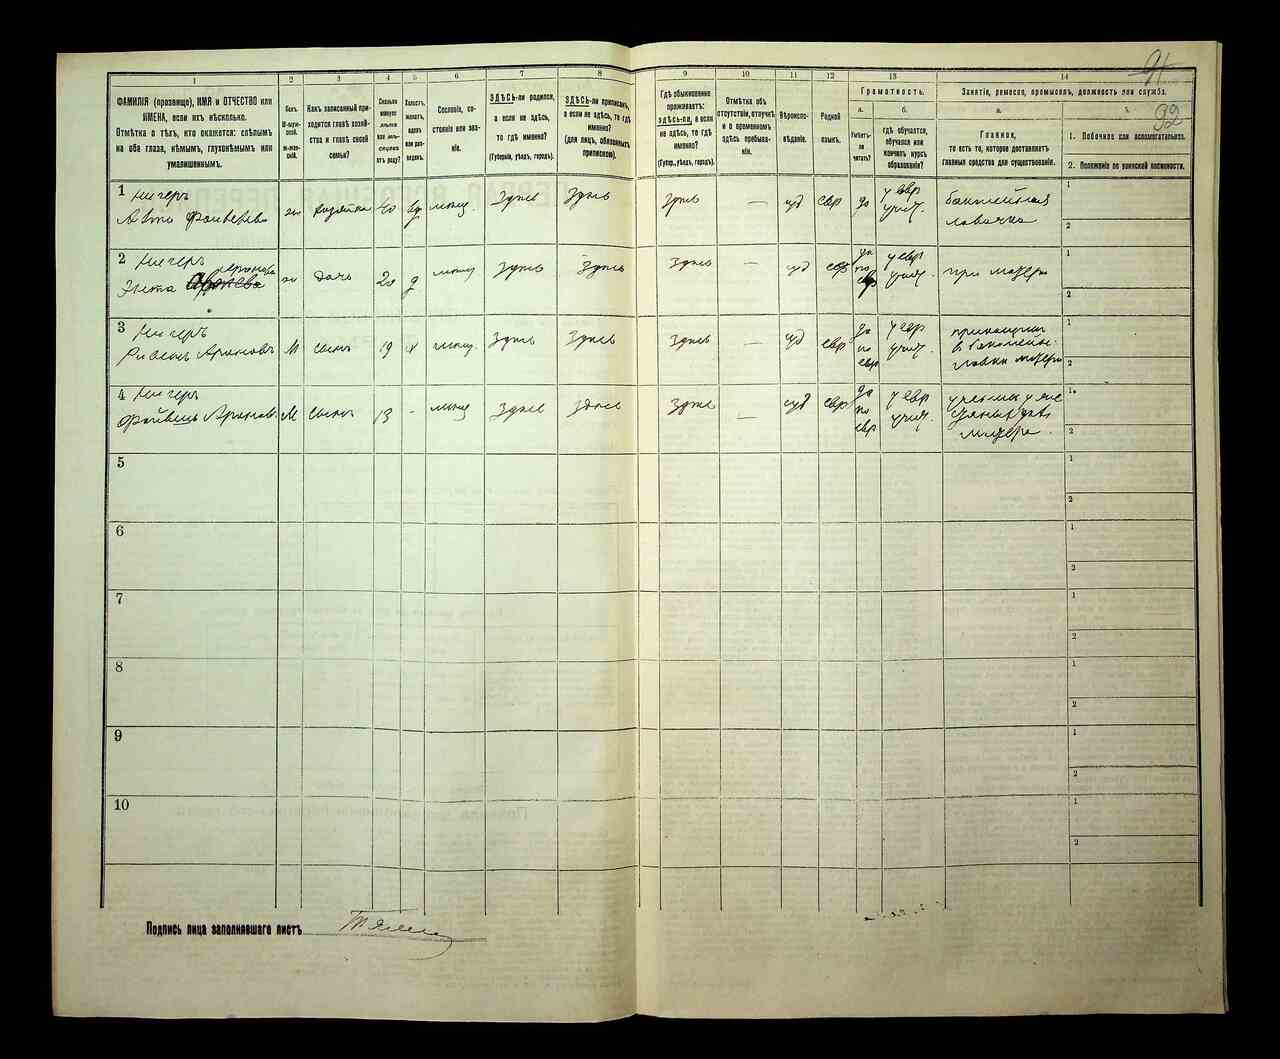 91
92
1
2
3
4
5
6
7
8
9
10
11
12
13
14
ФАМИЛІЯ (прозвище), ИМЯ и ОТЧЕСТВО или
ИМЕНА, если ихъ нѣсколько.
Отмѣтка о тѣхъ, кто окажется: слѣпымъ
на оба глаза, нѣмымъ, глухонѣмымъ или
умалишеннымъ.
Полъ.
М-мужской.
Ж-женскій.
Какъ записанный при-
ходится главѣ хозяй-
ства и главѣ своей
семьи?
Сколько
минуло
лѣтъ
или мѣ-
сяцевъ
отъ роду?
Холостъ,
женатъ,
вдовъ
или раз-
веденъ.
Сословіе, со-
стояніе или зва-
ніе.
ЗДѢСЬ-ли родился,
а если не здѣсь,
то гдѣ именно?
(Губернія, уѣздъ, городъ).
ЗДѢСЬ-ли приписанъ,
а если не здѣсь, то гдѣ
именно?
(для лицъ, обязанныхъ
припискою).
Гдѣ обыкновенно
проживаетъ:
здѣсь-ли, а если
не здѣсь, то гдѣ
именно?
(Губер., уѣздъ, городъ).
Отмѣтка объ
отсутствіи, отлучкѣ
и о временномъ
здѣсь пребыва-
ніи.
Вѣроиспо-
вѣданіе.
Родной
языкъ.
Грамотность.
а.
Умѣетъ-
ли
читать?
б.
гдѣ обучается,
обучался или
кончилъ курсъ
образованія?
Занятіе, ремесло, промыселъ, должность или служба.
а.
Главное,
то есть то, которое доставляетъ
главныя средства для существованія.
б.
1. Побочное или вспомогательное.
2. Положеніе по воинской повинности.
1 Нигеръ
ж хозяйка 40 вд мѣщ. Здѣсь Здѣсь Здѣсь — іуд евр да у евр учит. бакалейная лавочка
1
2
2 Нигеръ Аронова
ж дочь 20 д мѣщ Здѣсь Здѣсь Здѣсь — іуд евр да по евр у евр учит. при матери
1
2
3 Нигеръ
Ароновъ М сынъ 19 х мѣщ. Здѣсь Здѣсь Здѣсь — іуд евр да по евр у евр учит. прикащикъ в бакалейн. лавки матери
1
2
4 Нигеръ
Файвишъ Аронов. М сынъ 13 - мѣщ Здѣсь Здѣсь Здѣсь — іуд евр да по евр у евр учит. матери.
1
2
5
1
2
6
1
2
7
1
2
8
1
2
9
1
2
10
1
2
Подпись лица заполнявшаго листъ